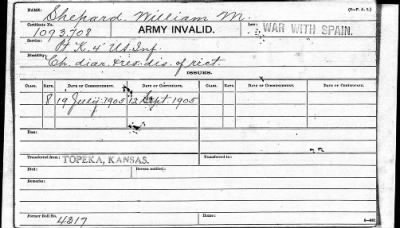 NAME: Shepard, William M. (3-P. A. 1.)
Certificate No. ARMY INVALID. WAR WITH SPAIN.
1,093,708
Service: Pt K. 4" US. Inf.
Disability: Ch. diar. & res. dis. of rect.
ISSUES.
CLASS. RATE. DATE OF COMMENCEMENT. DATE OF CERTIFICATE. CLASS. RATE. DATE OF COMMENCEMENT. DATE OF CERTIFICATE.
8 19 July 1905 12 Sept. 1905
Transferred from: TOPEKA, KANSAS. Transferred to:
Died: Bureau notified:
Remarks:
Former Roll No. 4317 Home: